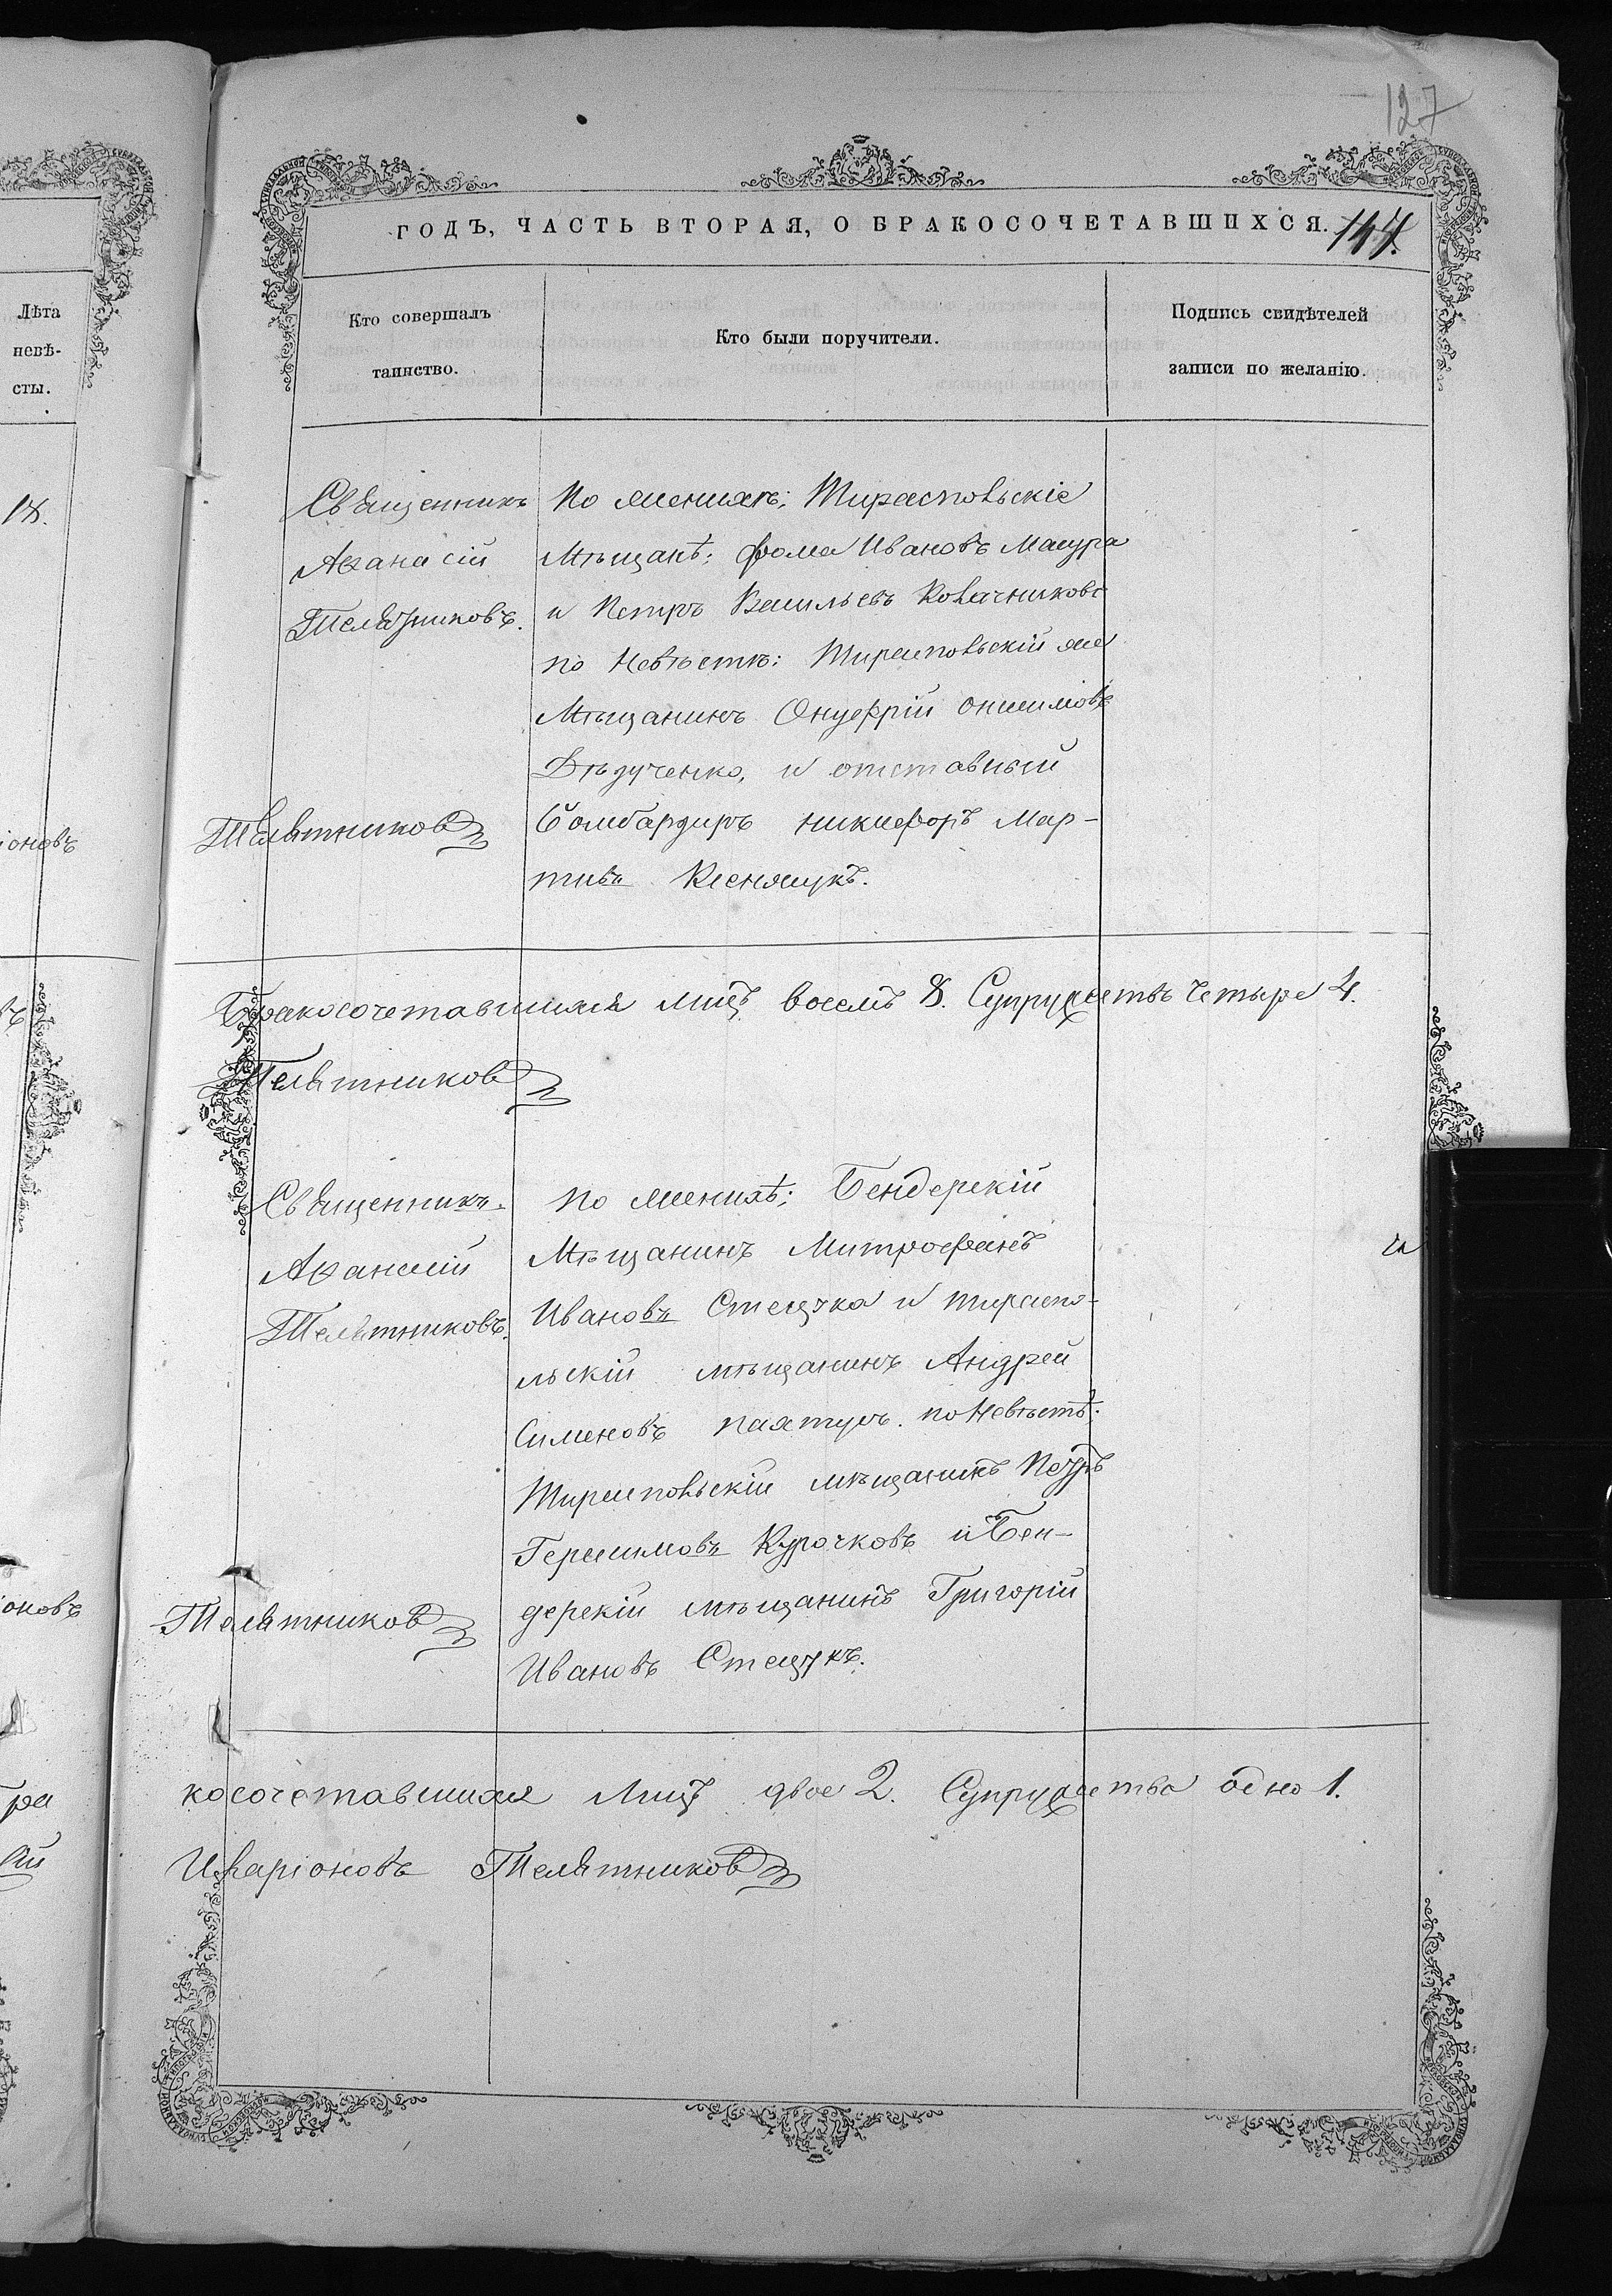 127
ГОДЪ, ЧАСТЬ ВТОРАЯ, О БРАКОСОЧЕТАВШИХСЯ. 147.
Лѣта
невѣ-
сты.
Кто совершалъ
таинство.
Кто были поручители.
Подпись свидѣтелей
записи по желанію.
18.
Священникъ
Аѳанасій
Телятниковъ.
Телятников
По женихѣ: Тираспольскіе
Мѣщанѣ: Фома Ивановъ Мазура
и Петръ Васильевъ Колачниковъ
по Невѣстѣ: Тираспольскій же
Мѣщанинъ Онуфрій Онисимовъ
Дѣдученко, и отставный
бомбардиръ Никифоръ Мар-
тинъ
іоновъ
Бракосочетавшихся лицъ восемъ 8. Супружествъ четыре 4.
Телятников
Священникъ
Аѳанасій
Телятниковъ.
Телятников
По женихѣ: Бендерскій
Мѣщанинъ Митрофанъ
Ивановъ Стецука и Тираспо-
льскій мѣщанинъ Андрей
Сименовъ по Невѣстѣ:
Тираспольскій мѣщанинъ Петръ
Герасимовъ Курочковъ и Бен-
дерскій мѣщанинъ Григорій
Ивановъ Стецукъ.
оновъ
косочетавшихся Лицъ двое 2. Супружество одно 1.
Иларіоновъ Телятников